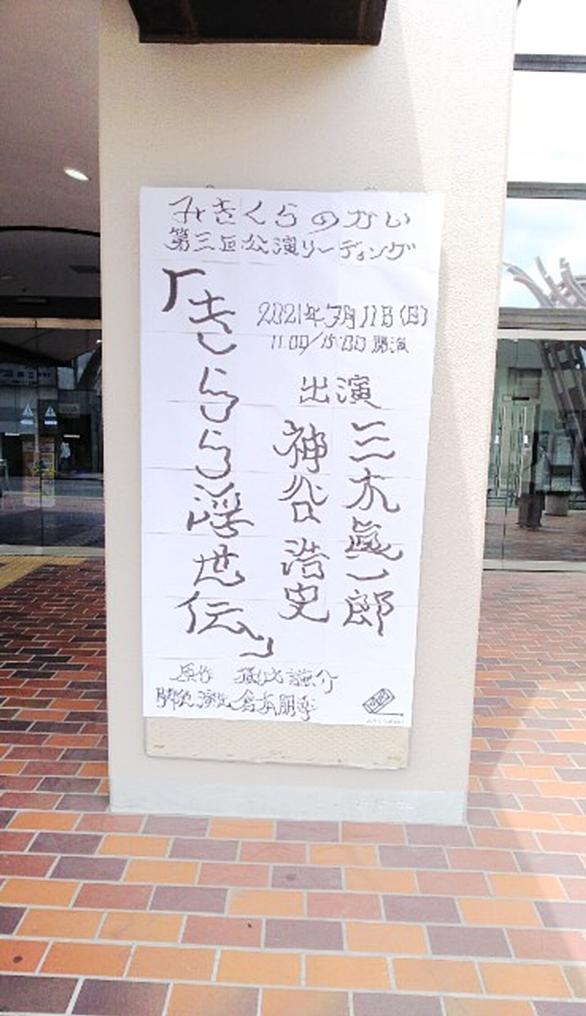 みきくらのかい
第三回公演リーディング
「きらら浮世伝」
2021年7月11日(日)
11:00/15:00 開演
出演
三木眞一郎
神谷浩史
原作 横内謙介
演出 倉本朋幸